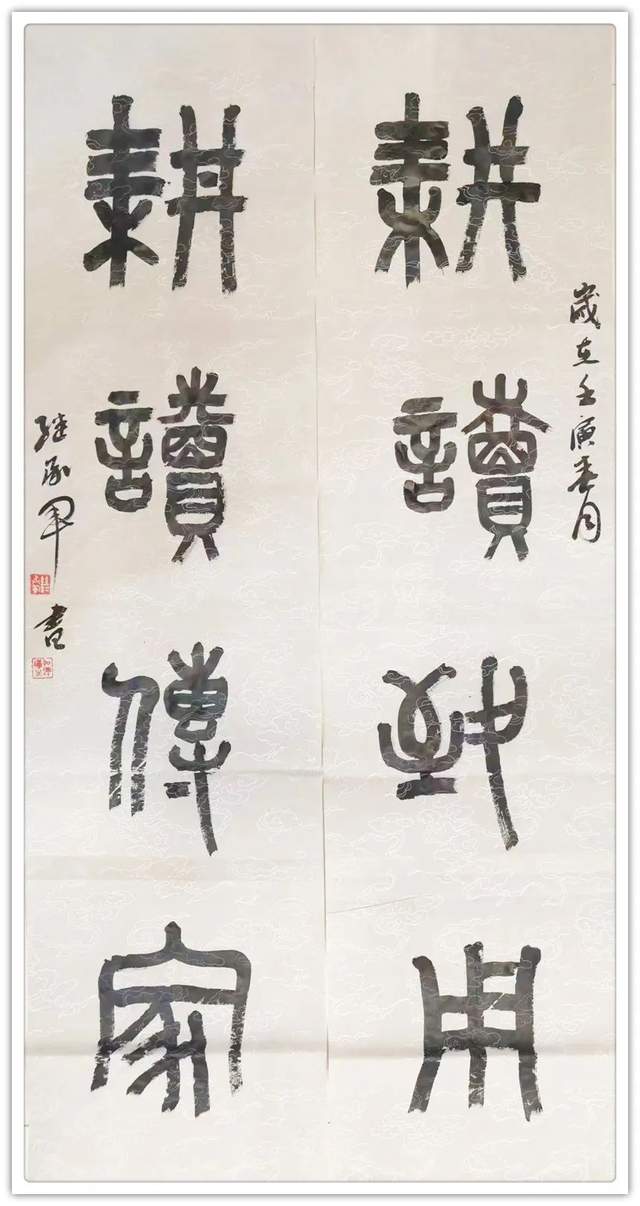 歲在壬寅春月
耕讀致用
耕讀傳家
書